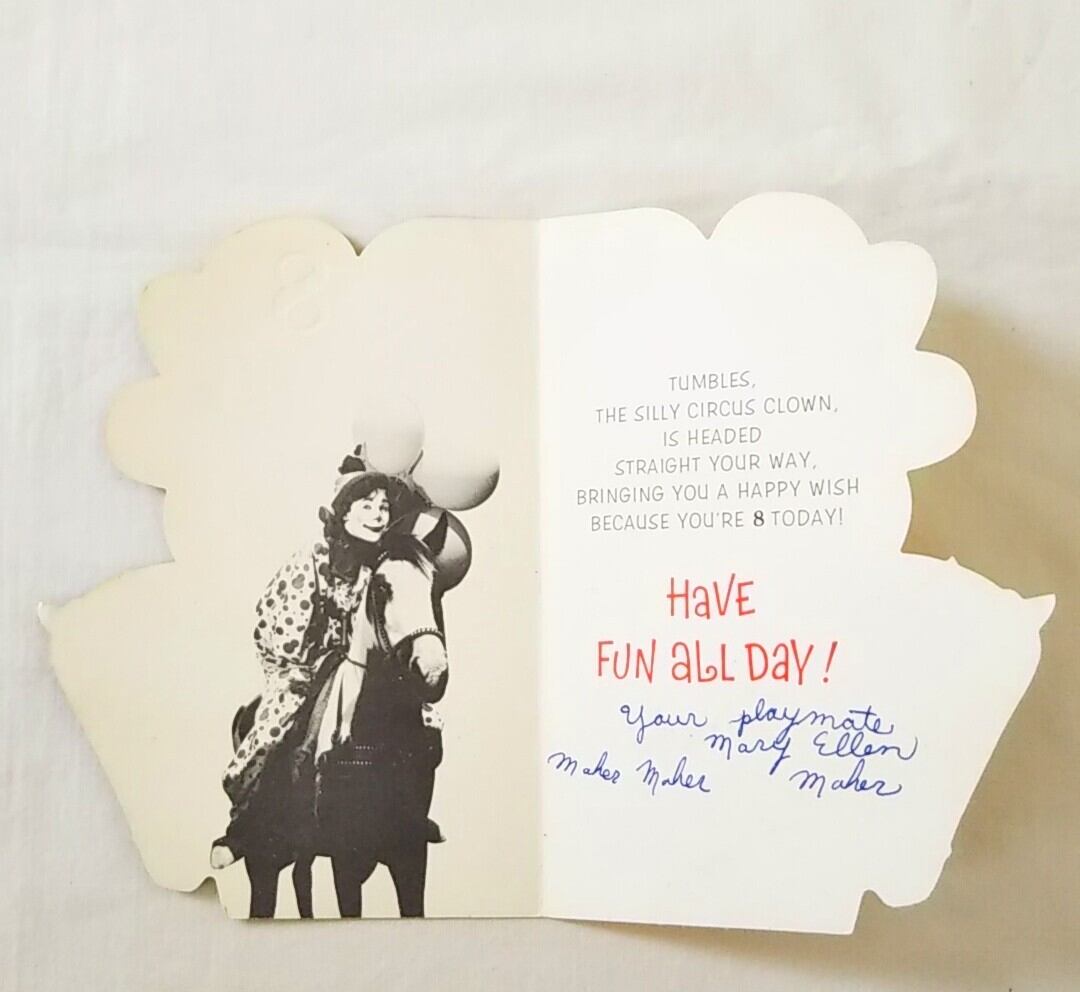 8
TUMBLES,
THE SILLY CIRCUS CLOWN,
IS HEADED
STRAIGHT YOUR WAY,
BRINGING YOU A HAPPY WISH
BECAUSE YOU'RE 8 TODAY!
HAVE
FUN ALL DAY!
Your playmate
Mary Ellen
Maher Maher Maher